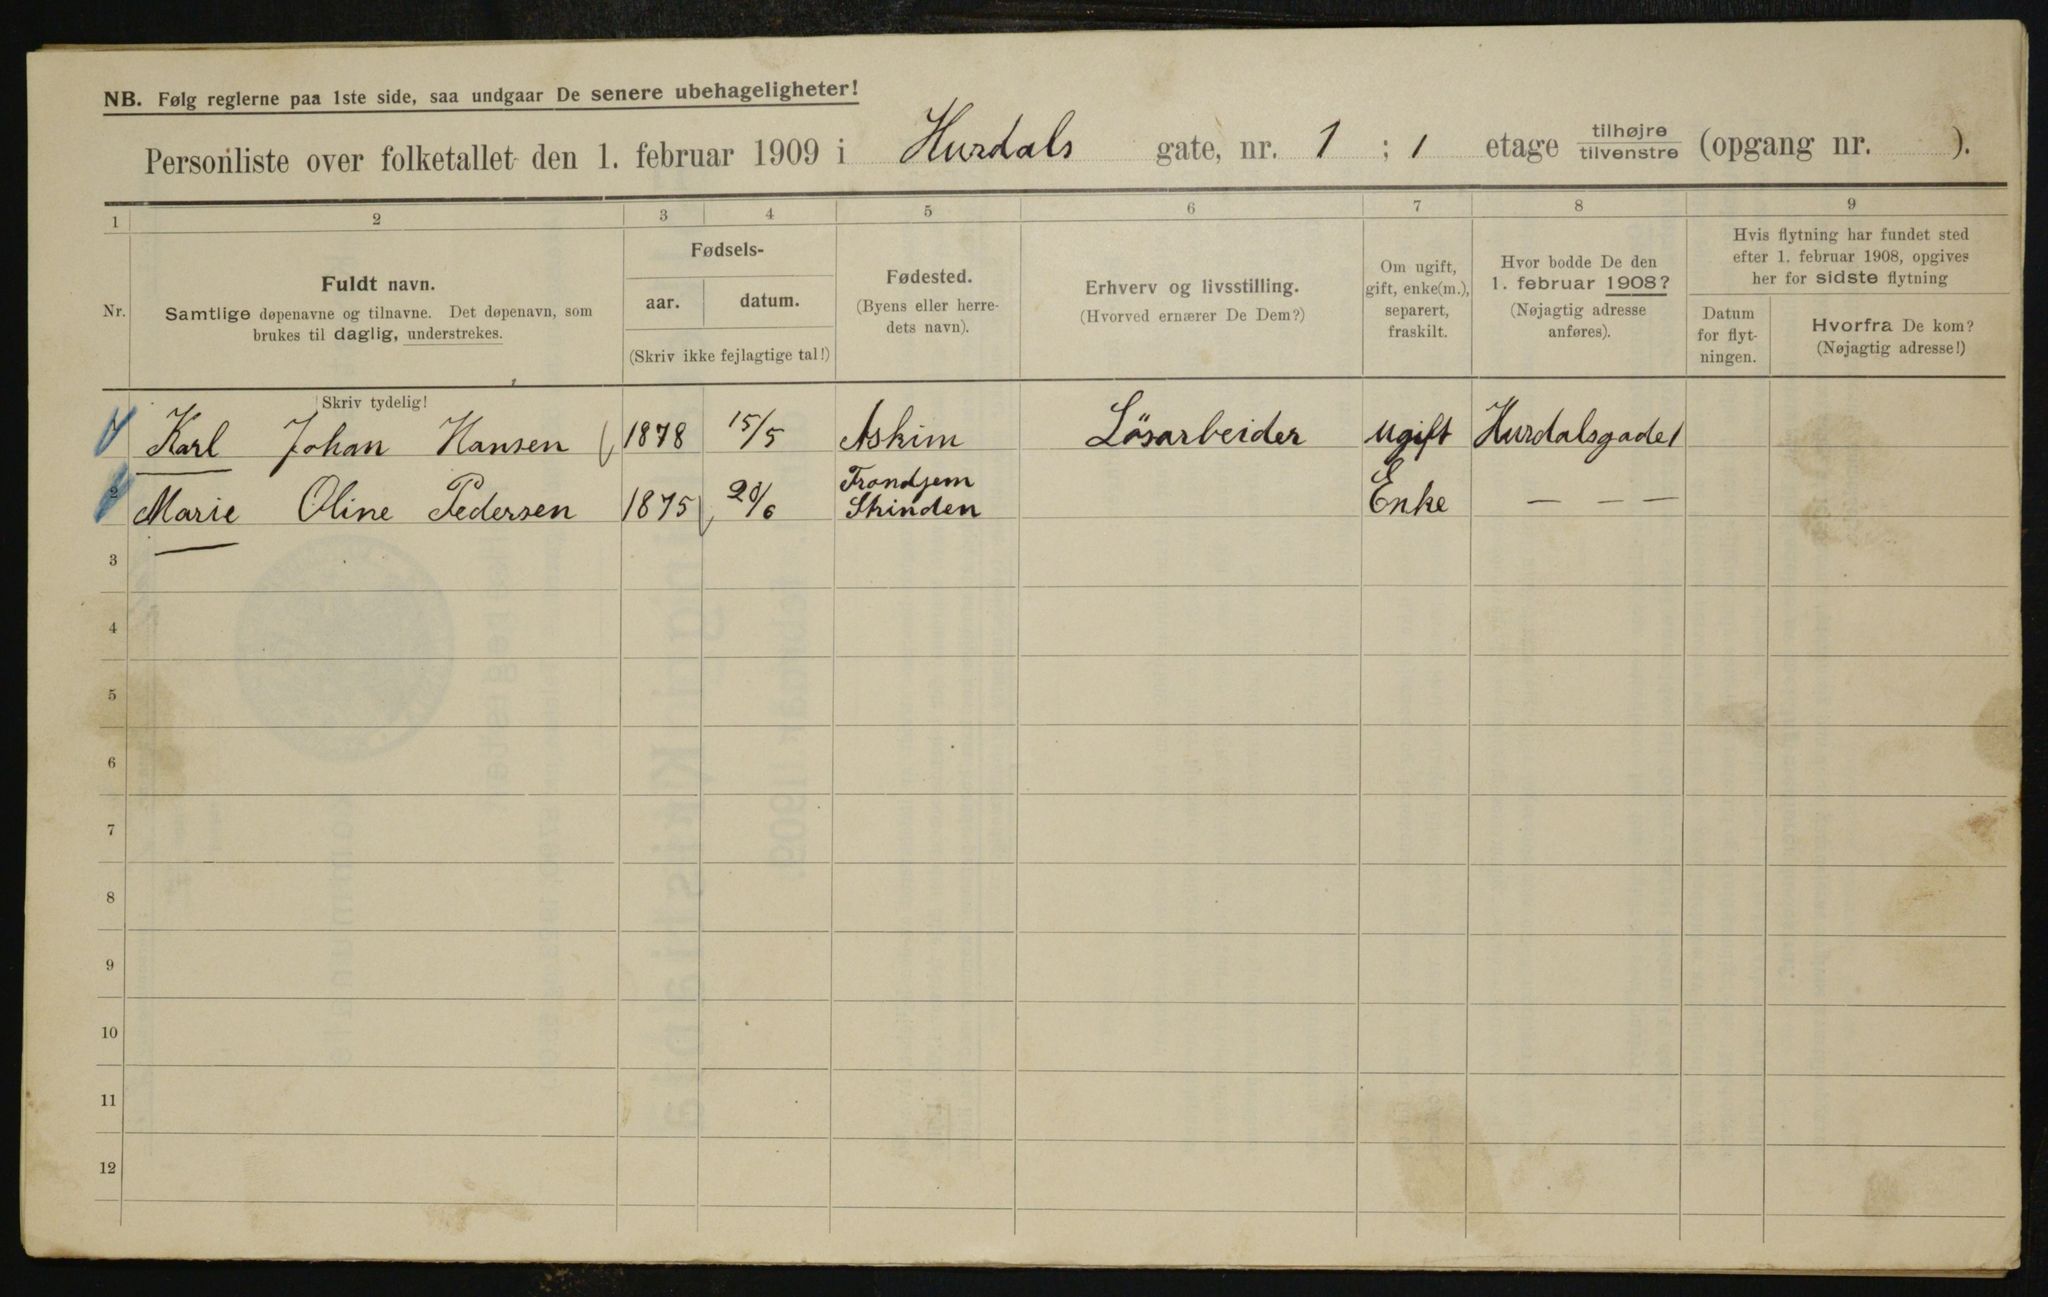 NB. Følg reglerne paa 1ste side, saa undgaar De senere ubehageligheter!
Personliste over folketallet den 1. februar 1909 i Hurdals gate, nr. 1 ; 1 etage tilhøjre / tilvenstre (opgang nr. ).
1 2 3 4 5 6 7 8 9
Nr.
Fuldt navn.
Samtlige døpenavne og tilnavne. Det døpenavn, som
brukes til daglig, understrekes.
Fødsels-
aar. datum.
(Skriv ikke fejlagtige tal!)
Fødested.
(Byens eller herre-
dets navn).
Erhverv og livsstilling.
(Hvorved ernærer De Dem?)
Om ugift,
gift, enke(m.),
separert,
fraskilt.
Hvor bodde De den
1. februar 1908?
(Nøjagtig adresse
anføres).
Hvis flytning har fundet sted
efter 1. februar 1908, opgives
her for sidste flytning
Datum
for flyt-
ningen.
Hvorfra De kom?
(Nøjagtig adresse!)
Skriv tydelig!
Karl Johan Hansen 1878 15/5 Askim Løsarbeider ugift Hurdalsgade 1
2 Marie Oline Pedersen 1875 /6 Trondjem Enke — — —
3
4
5
6
7
8
9
10
11
12